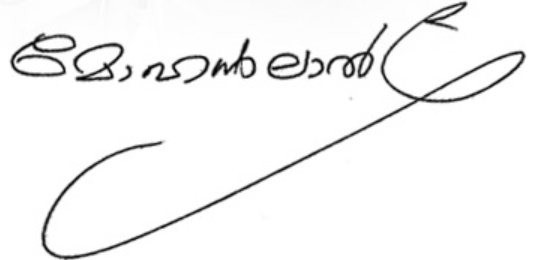 മോഹൻലാൽ